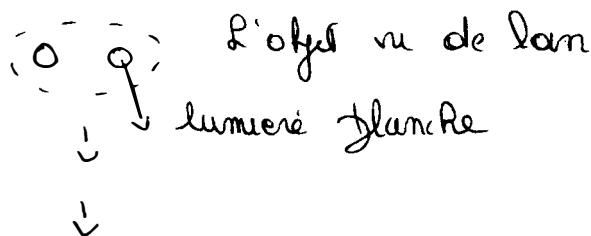 L'objet vu de loin
lumiere blanche